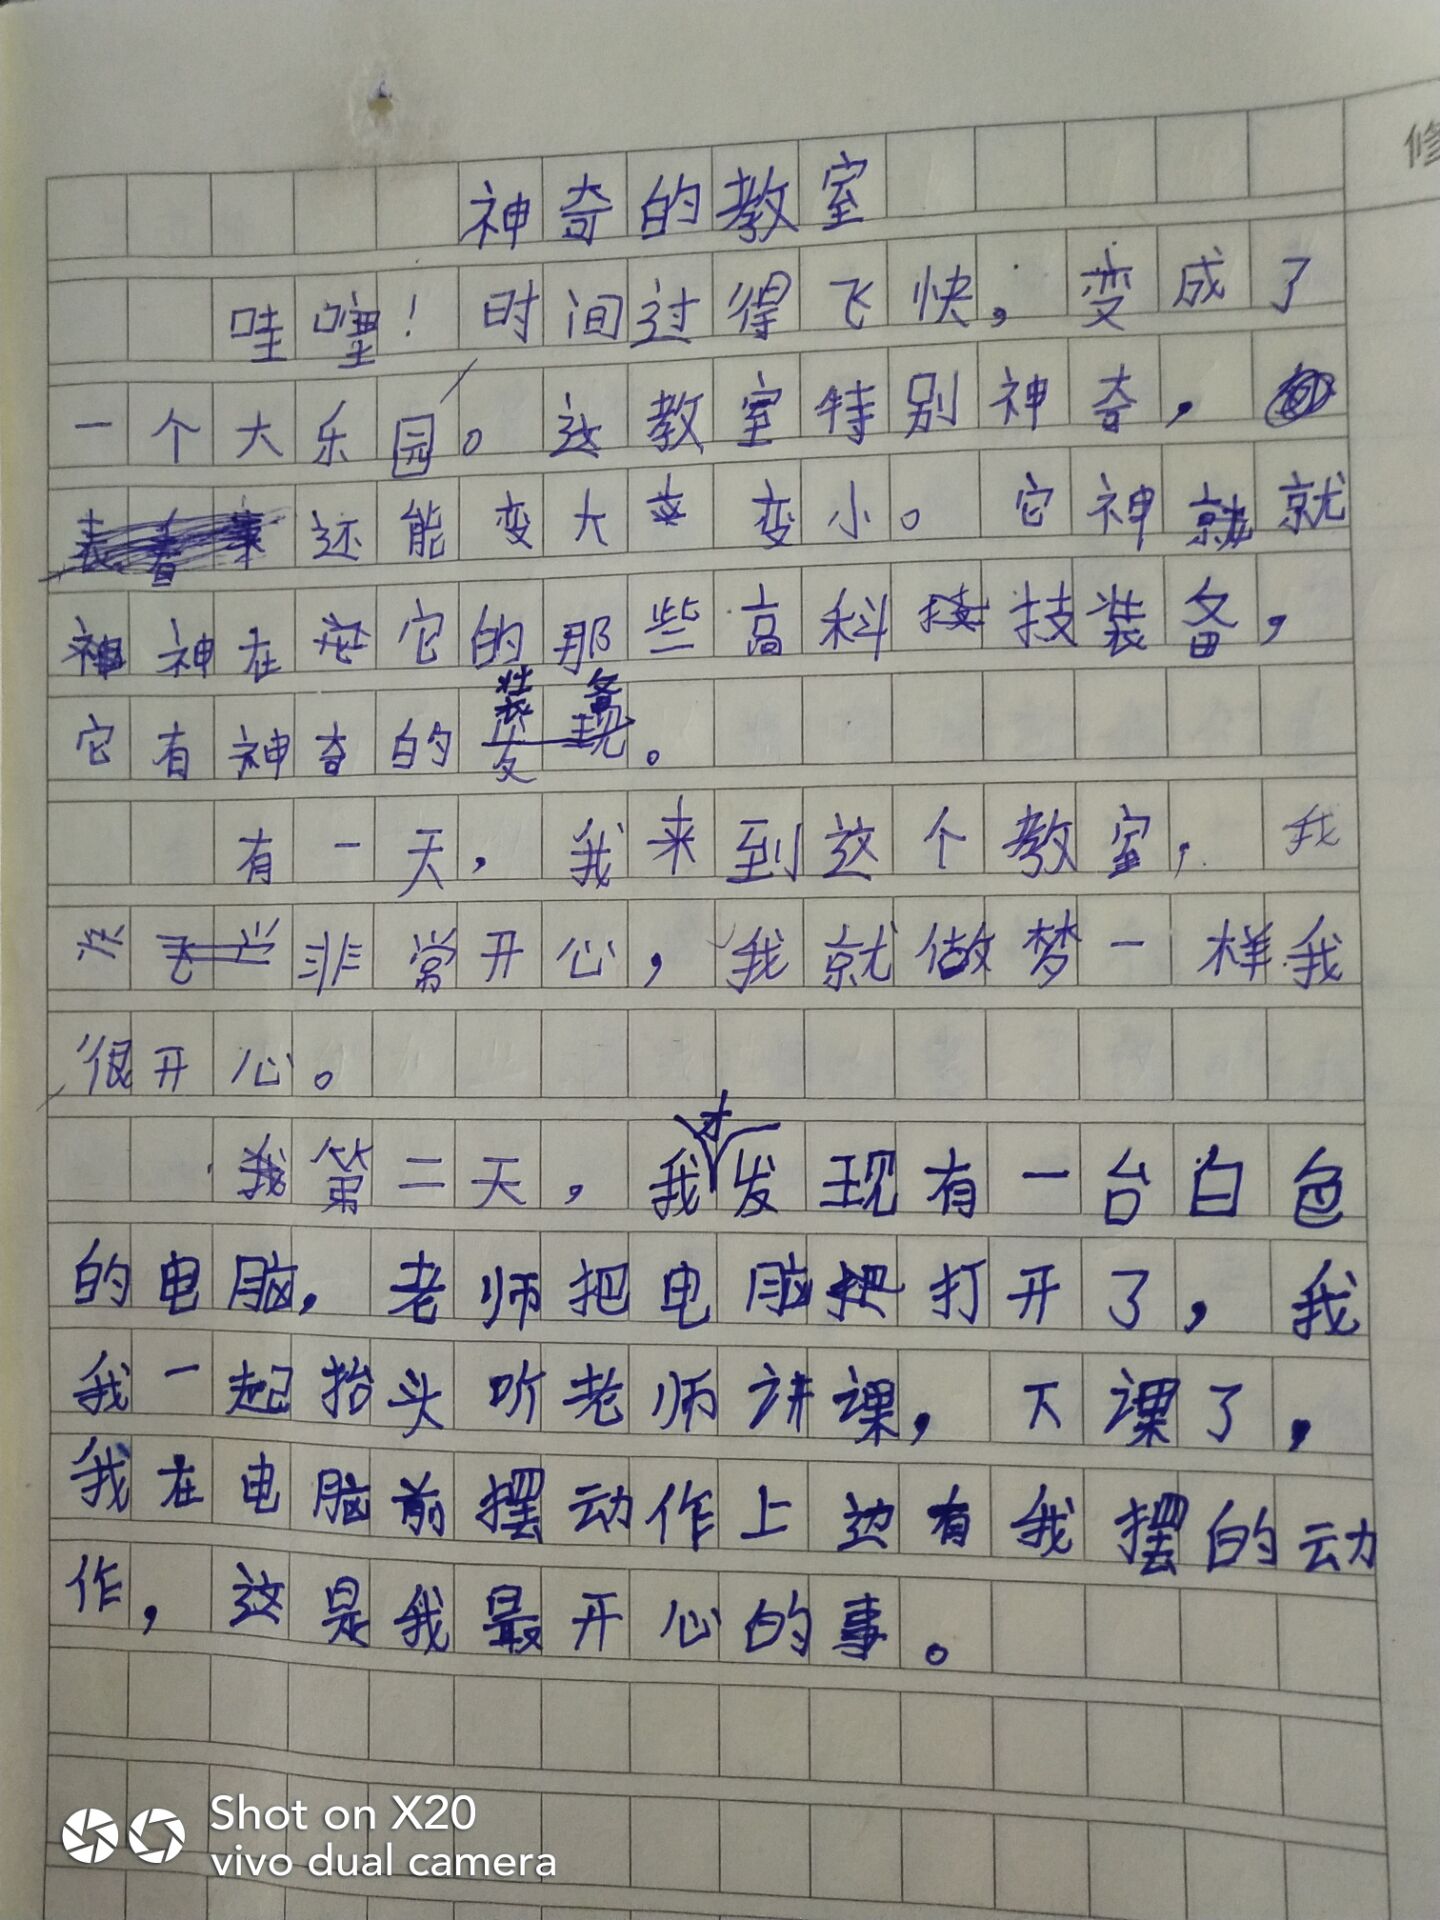 修
神奇的教室
哇噻！时间过得飞快，变成了
一个大乐园。这教室特别神奇，
还能变大变小。它神就就
神在它的那些高科技装备，
它有神奇的装备。
有一天，我来到这个教室，我
非常开心，我就做梦一样我
很开心。
我第二天，我才发现有一台白色
的电脑，老师把电脑打开了，我
我一起抬头听老师讲课，下课了，
我在电脑前摆动作上边有我摆的动
作，这是我最开心的事。
Shot on X20
vivo dual camera